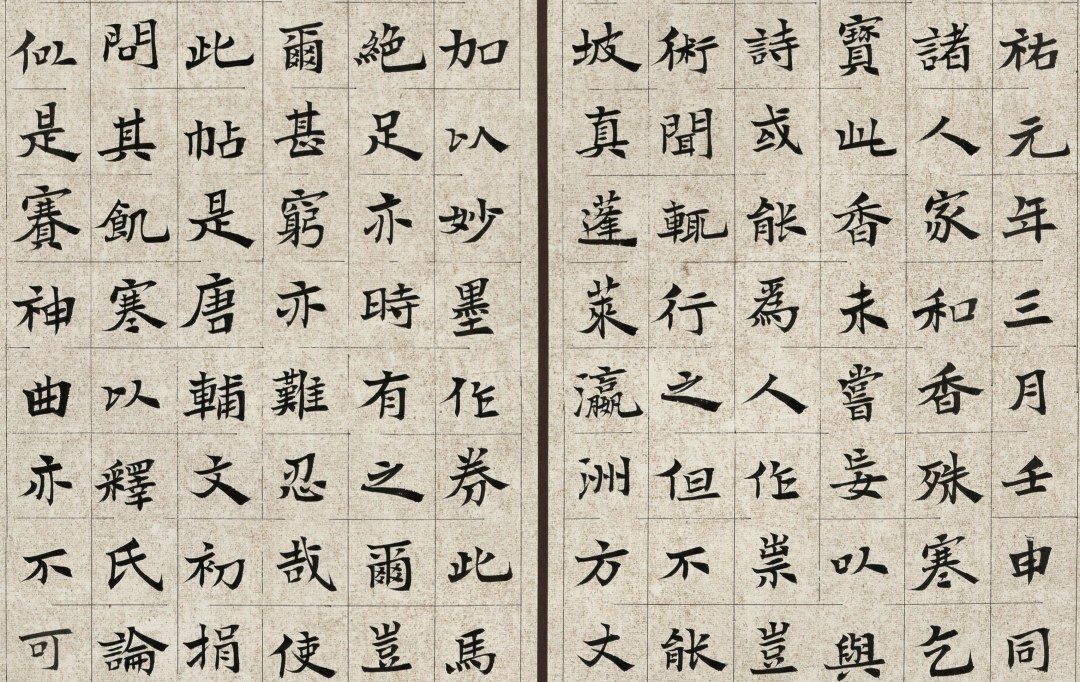 祐元年三月壬申同
諸人家和香殊寒乞
寶此香未嘗妄以與
詩或能爲人作祟豈
術聞輒行之但不能
坡真蓬萊瀛洲方丈
加以妙墨作券此馬
絶足亦時有之爾豈
爾甚窮亦難忍哉使
此帖是唐輔文初捐
問其飢寒以釋氏論
似是賽神曲亦不可